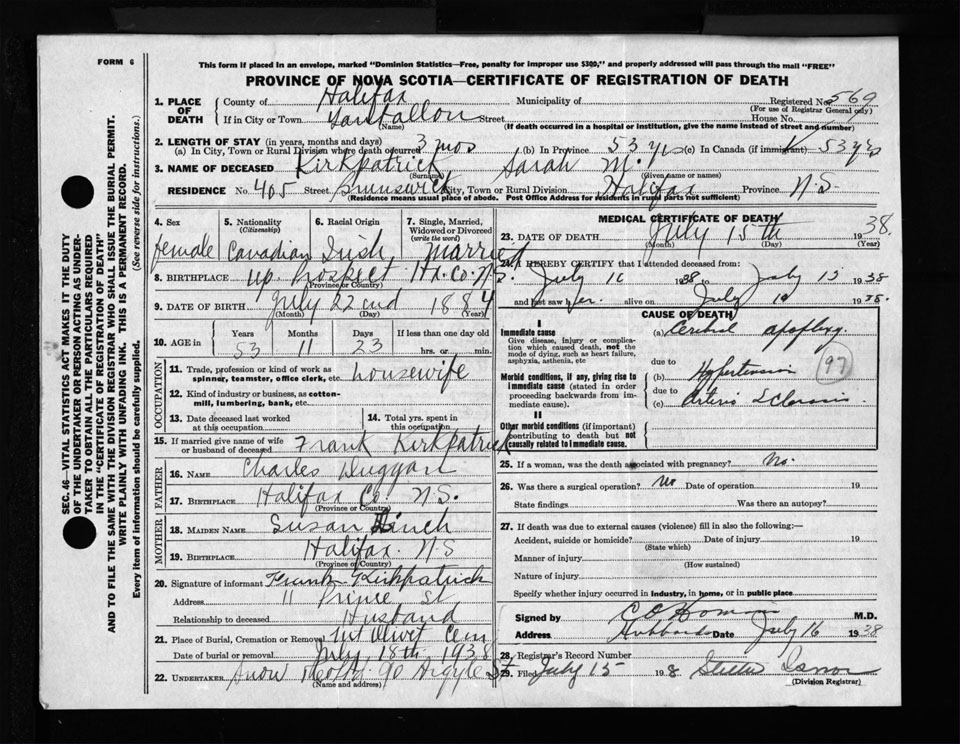 FORM 6
This form if placed in an envelope, marked "Dominion Statistics—Free, penalty for improper use $300," and properly addressed will pass through the mail "FREE"
PROVINCE OF NOVA SCOTIA—CERTIFICATE OF REGISTRATION OF DEATH
SEC. 46—VITAL STATISTICS ACT MAKES IT THE DUTY
OF THE UNDERTAKER OR PERSON ACTING AS UNDER-
TAKER TO OBTAIN ALL THE PARTICULARS REQUIRED
IN THE "CERTIFICATE OF REGISTRATION OF DEATH"
AND TO FILE THE SAME WITH THE DIVISION REGISTRAR WHO SHALL ISSUE THE BURIAL PERMIT.
WRITE PLAINLY WITH UNFADING INK. THIS IS A PERMANENT RECORD.
Every item of information should be carefully supplied. (See reverse side for instructions.)
1. PLACE OF DEATH County of Halifax Municipality of Registered No. 569
(For use of Registrar General only)
If in City or Town Tantallon Street House No.
(Name) (If death occurred in a hospital or institution, give the name instead of street and number)
2. LENGTH OF STAY (in years, months and days)
(a) In City, Town or Rural Division where death occurred 3 mos (b) In Province 53 yrs (c) In Canada (if immigrant) 53 yrs
3. NAME OF DECEASED Kirkpatrick Sarah M.
(Surname) (Given name or names)
RESIDENCE No. 405 Street Brunswick City, Town or Rural Division Halifax Province N.S.
(Residence means usual place of abode. Post Office Address for residents in rural parts not sufficient)
4. Sex female
5. Nationality (Citizenship) Canadian
6. Racial Origin Irish
7. Single, Married, Widowed or Divorced (write the word) Married
8. BIRTHPLACE Up. Prospect Hx. Co. N.S.
(Province or Country)
9. DATE OF BIRTH July 22nd 1884
(Month) (Day) (Year)
10. AGE in Years 53 Months 11 Days 23 If less than one day old hrs. or min.
OCCUPATION
11. Trade, profession or kind of work as spinner, teamster, office clerk, etc. housewife
12. Kind of industry or business, as cotton-mill, lumbering, bank, etc.
13. Date deceased last worked at this occupation
14. Total yrs. spent in this occupation
15. If married give name of wife or husband of deceased Frank Kirkpatrick
FATHER
16. NAME Charles Duggan
17. BIRTHPLACE Halifax Co N.S.
(Province or Country)
MOTHER
18. MAIDEN NAME Susan
19. BIRTHPLACE Halifax. N.S
(Province or Country)
20. Signature of informant Frank Kirkpatrick
Address 11 Prince St
Relationship to deceased Husband
21. Place of Burial, Cremation or Removal Mt Olivet Cem
Date of burial or removal July 18th 1938
22. UNDERTAKER Snow 90 Argyle St
(Name and address)
MEDICAL CERTIFICATE OF DEATH
23. DATE OF DEATH July 15th 1938.
(Month) (Day) (Year)
24. I HEREBY CERTIFY that I attended deceased from:
July 1938 to July 15 1938
and last saw her alive on July 1938.
CAUSE OF DEATH
I
Immediate cause
Give disease, injury or complication which caused death, not the mode of dying, such as heart failure, asphyxia, asthenia, etc
(a) Cerebral apoplexy
due to
Morbid conditions, if any, giving rise to immediate cause (stated in order proceeding backwards from immediate cause).
(b) Hypertension 97
due to
(c) Arterio Sclerosis
II
Other morbid conditions (if important) contributing to death but not causally related to immediate cause.
25. If a woman, was the death associated with pregnancy? No.
26. Was there a surgical operation? No Date of operation 19
State findings Was there an autopsy?
27. If death was due to external causes (violence) fill in also the following:—
Accident, suicide or homicide? Date of injury 19
(State which)
Manner of injury
(How sustained)
Nature of injury
Specify whether injury occurred in industry, in home, or in public place
Signed by M.D.
Address Hubbards Date July 16 1938
28. Registrar's Record Number
29. Filed July 15 1938
(Division Registrar)